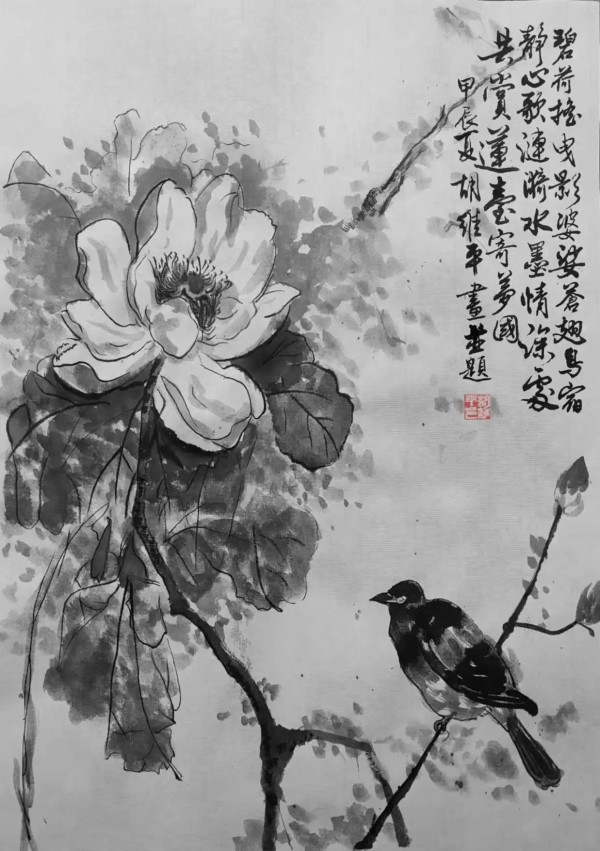 碧荷搖曳影婆娑蒼翅鳥宿
靜心歌漣漪水墨情深處
共賞蓮臺寄夢國
甲辰夏胡維平畫並題